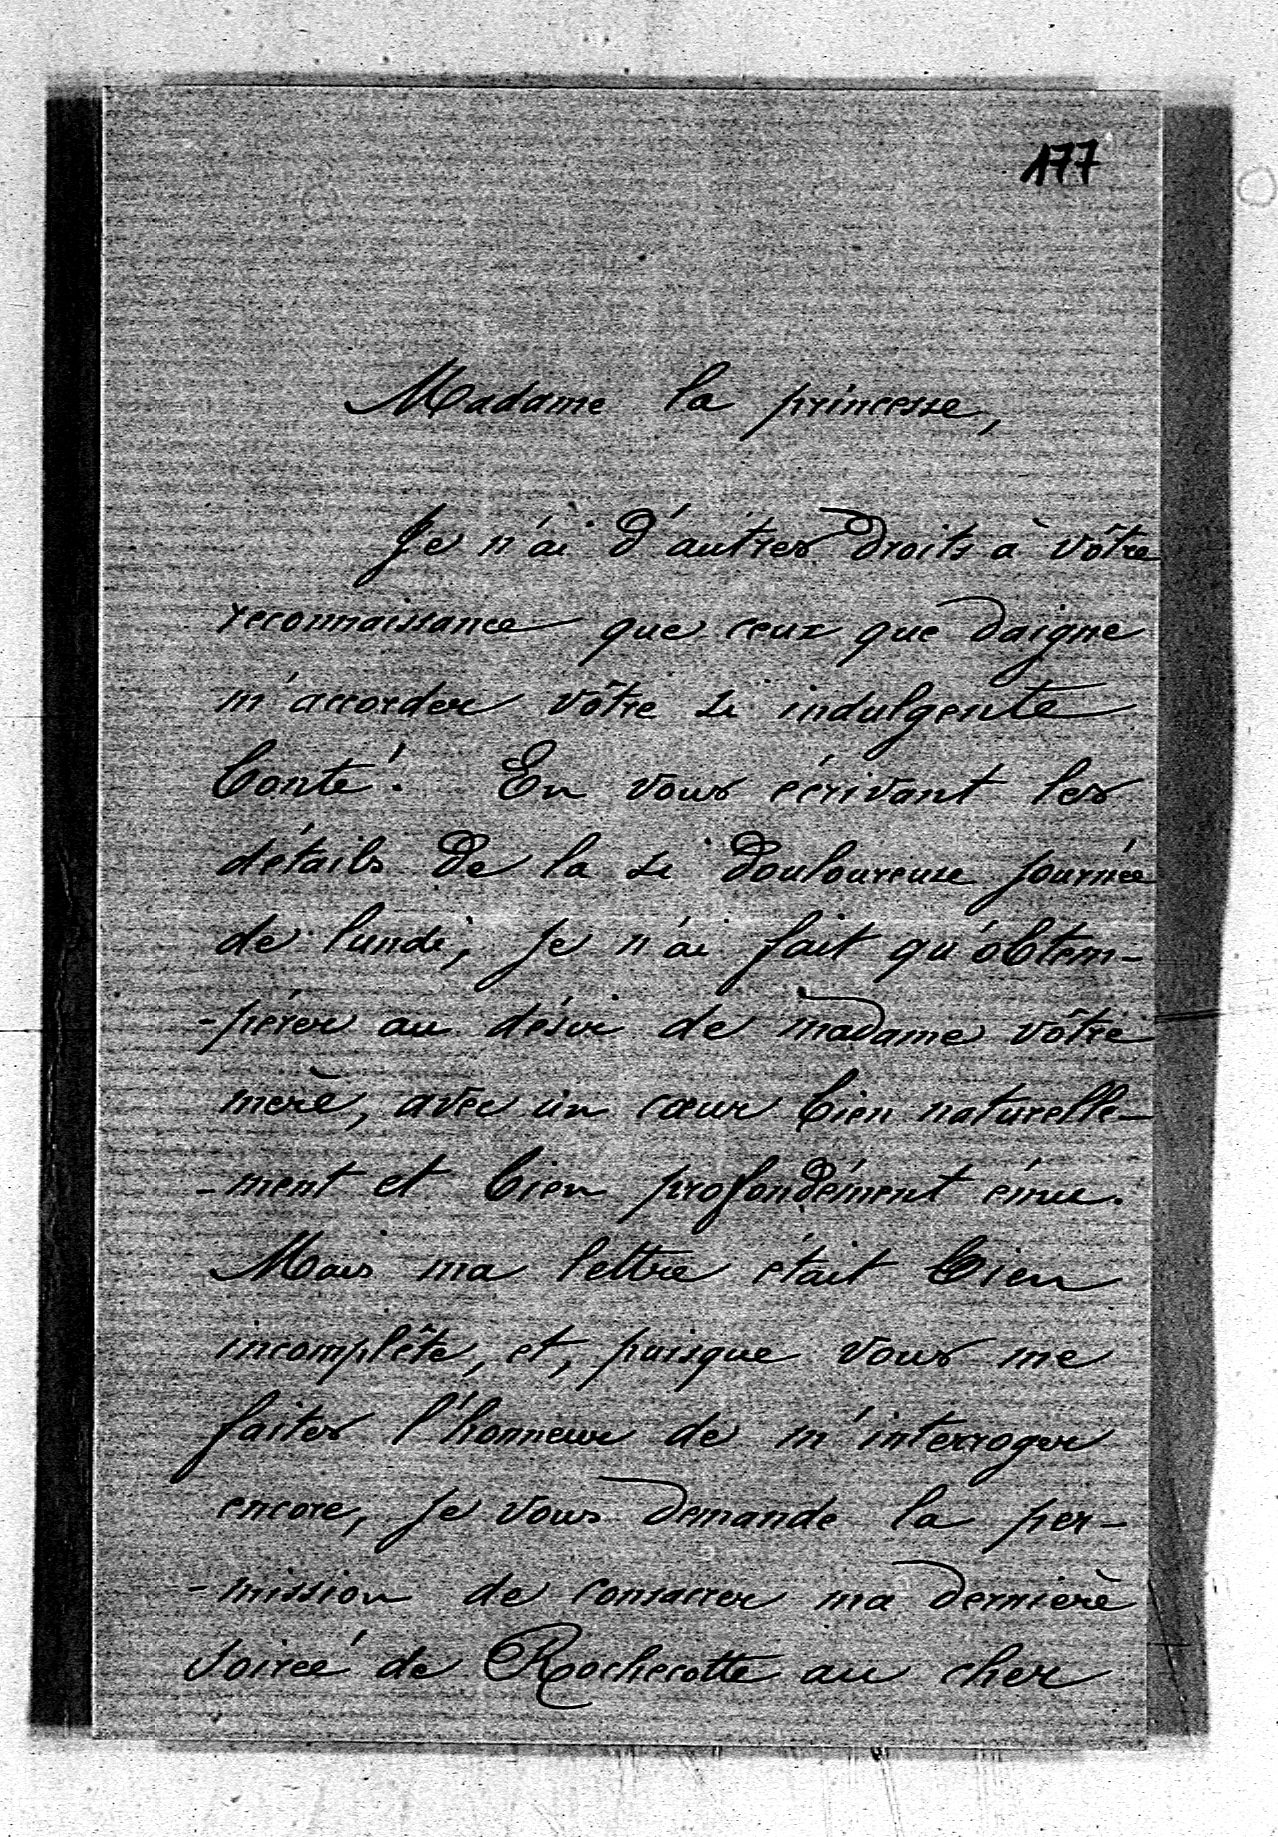 177
Madame la princesse,
Je n'ai d'autres droits à vôtre
reconnaissance que ceux que daigne
m'accorder vôtre si indulgente
bonté. En vous écrivant les
détails de la si douloureuse journée
de lundi, je n'ai fait qu'obtem-
-pérer au désir de madame vôtre
mère, avec un cœur bien naturelle-
-ment et bien profondément ému.
Mais ma lettre était bien
incomplète, et, puisque vous me
faites l'honneur de m'interroger
encore, je vous demande la per-
-mission de consacrer ma dernière
soirée de Rochecotte au cher